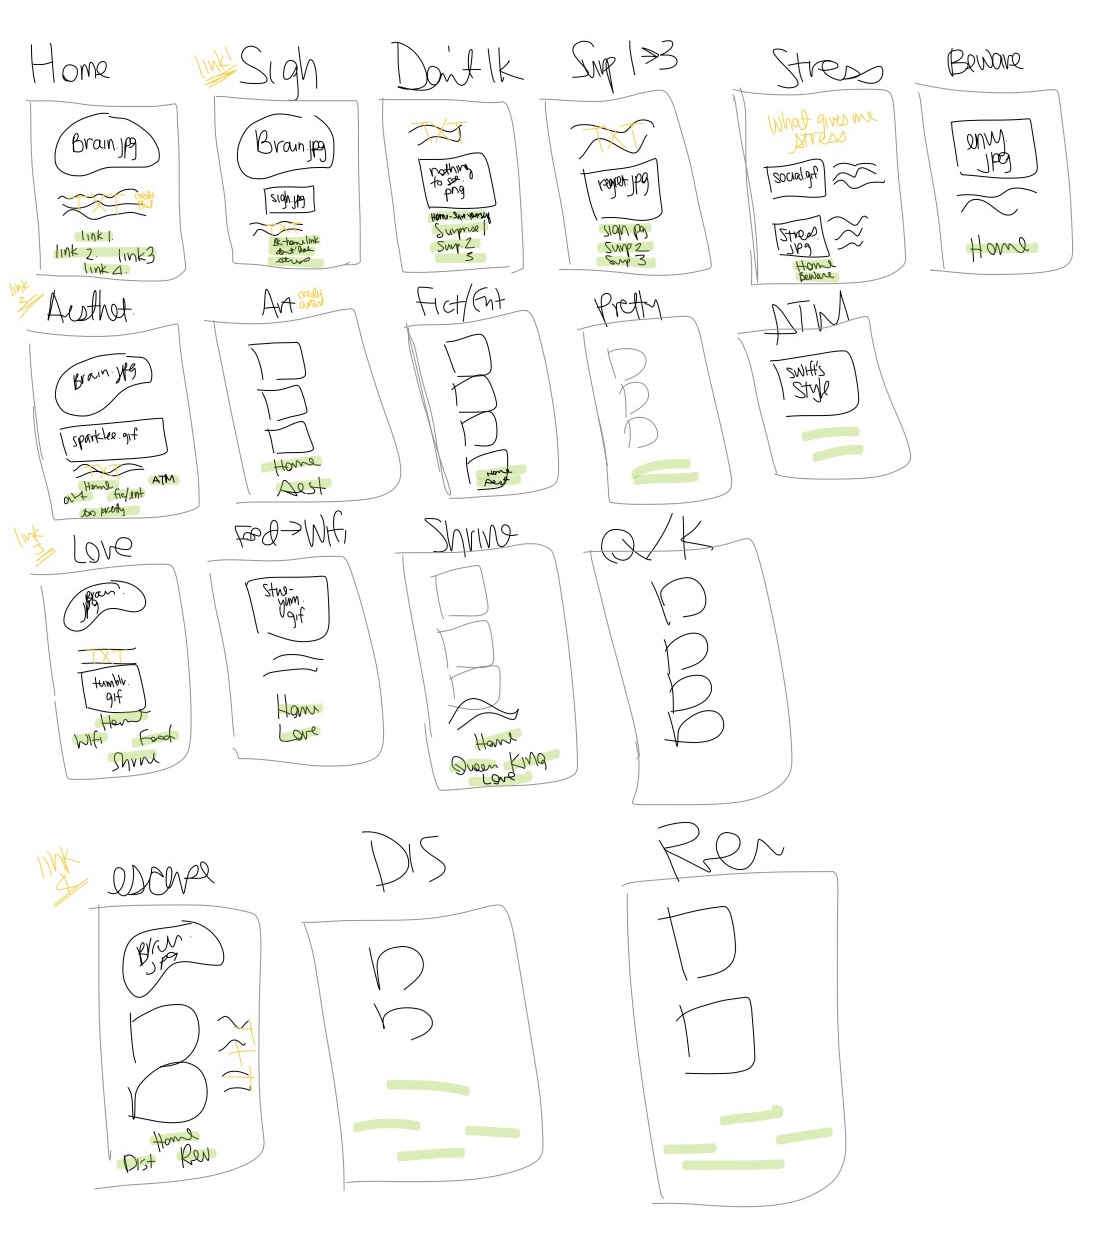 Home
Brain.jpg
TXT
credit
link 1
link 2
link 3
link 4
link 1
Sigh
Brain.jpg
sigh.jpg
TXT
Don't lk
TXT
nothing
to see.
png
Surprise 1
Surp. 2
3
Surp 1→3
TXT
regret.jpg
sign pg
Surp 2
Surp 3
Stress
What gives me
stress
social.gif
Stress.
jpg
Home
Beware
Beware
envy.
jpg
Home
link
2
Aesthet.
Brain.jpg
sparkle.gif
TXT
Home
ATM
art
fic/ent
too pretty
Art
credit
artist
Home
Aest
Fict/Ent
Home
Aest
Pretty
ATM
swift's
style
link
3
Love
Brain.
jpg
TXT
tumblr.
gif
Home
Wifi
Food
Shrine
Food→Wifi
gif
Home
Love
Shrine
Home
Queen King
Love
Q/K
link
4
escape
Brain.
jpg
TXT
Home
Dist Rev
DIS
Rev